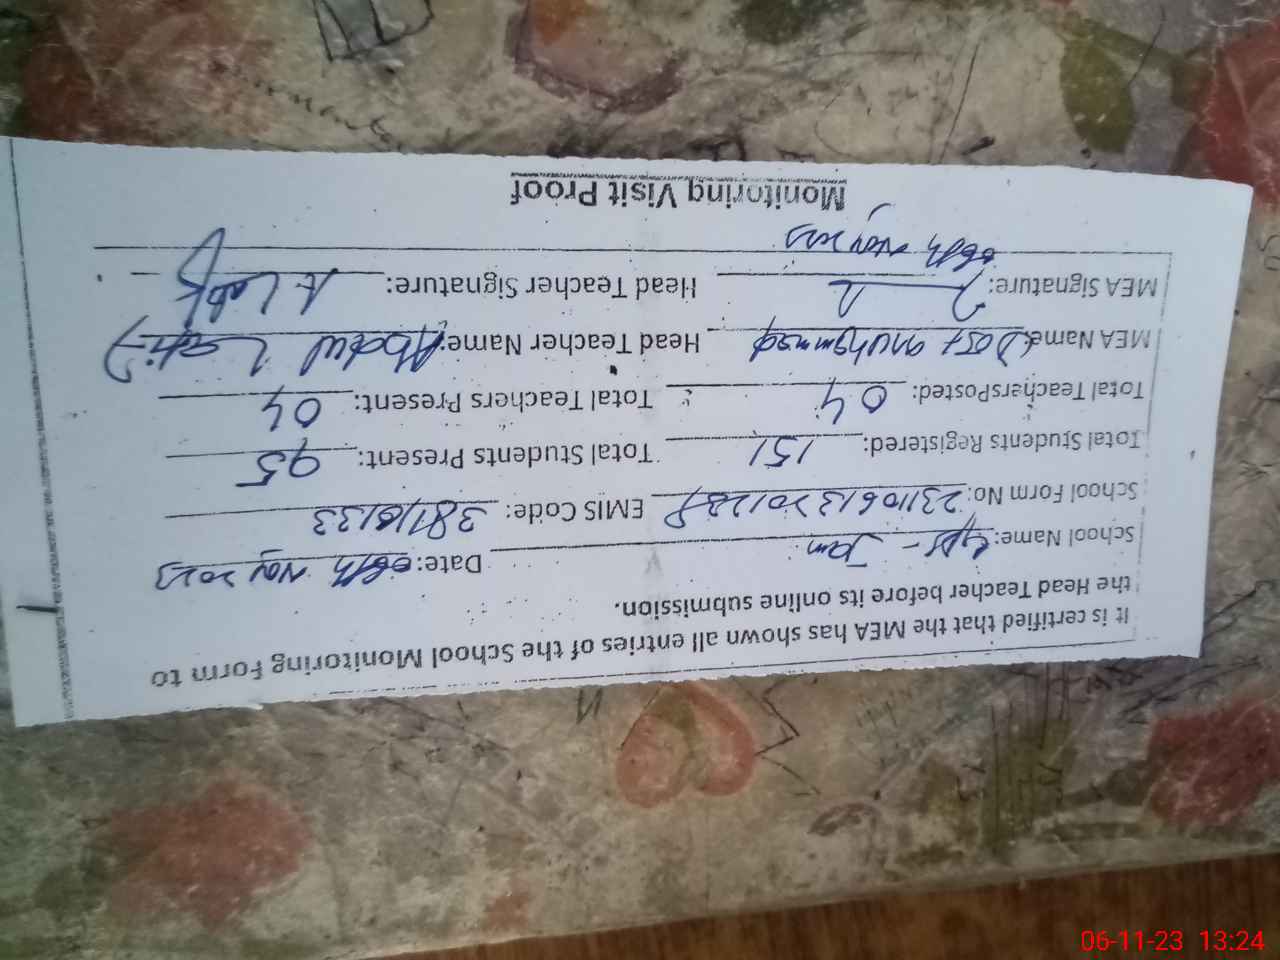 It is certified that the MEA has shown all entries of the School Monitoring Form to
the Head Teacher before its online submission.
School Name: GPS - Jam Date: 06th Nov 2023
School Form No: EMIS Code:
Total Students Registered: 151 Total Students Present: 95
Total TeachersPosted: 04 Total Teachers Present: 04
MEA Name: Dost Muhammad Head Teacher Name: Abdul Latif
MEA Signature: Head Teacher Signature: A Latif
06th Nov 2023
Monitoring Visit Proof
06-11-23 13:24